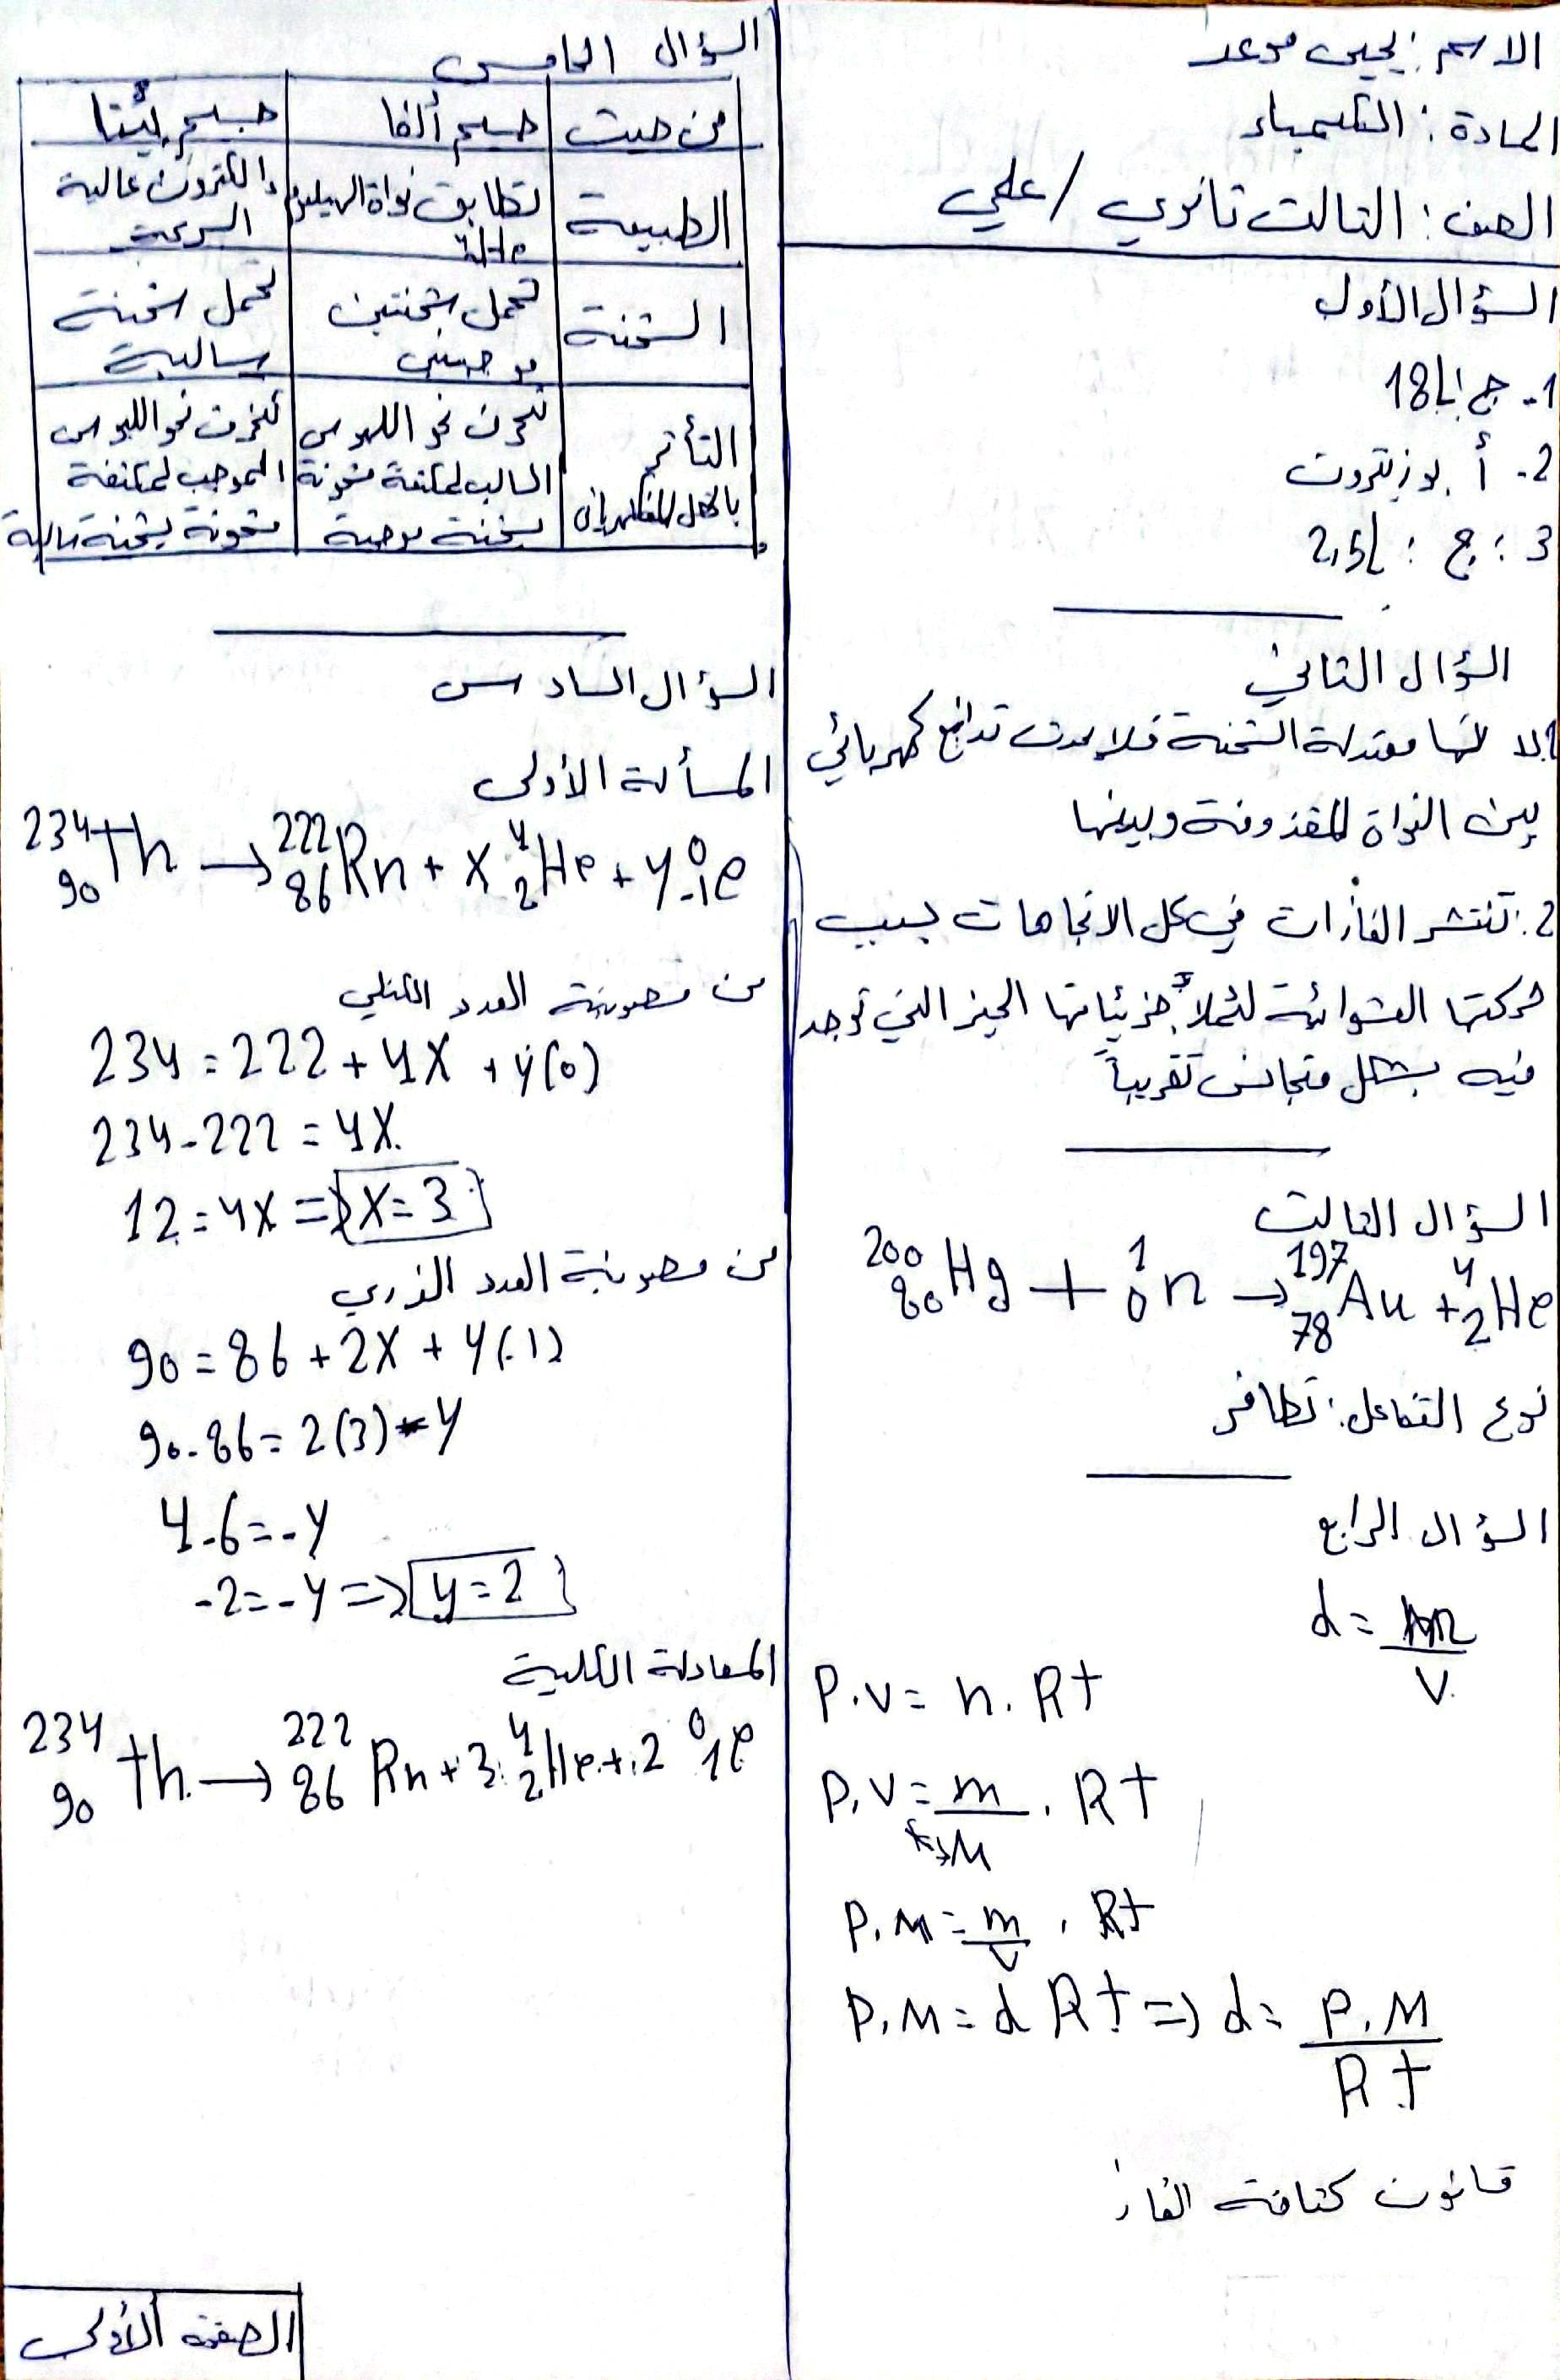 الاسم: يحيى موعد
المادة: الكيمياء
الصف: الثالث ثانوي / علمي
السؤال الأول
1- ج: 18L
2- أ. بوزيترون
3: ج: 2,5L
السؤال الثاني
1. لا نها معتدلة الشحنة فلا يحدث تدافع كهربائي
بين النواة المقذوفة وبينها
2: تنتشر الغازات في كل الاتجاهات بسبب
حركتها العشوائية لتملأ جزيئاتها الحيز الذي توجد
فيه بشكل متجانس تقريباً
السؤال الثالث
²⁰⁰₈₀Hg + ¹₀n → ¹⁹⁷₇₈Au + ⁴₂He
نوع التفاعل: تطافر
السؤال الرابع
d = m/V
P.V = n. Rt
P.V = m/M . Rt
P.M = m/V . Rt
P.M = d Rt => d = P.M/Rt
قانون كثافة الغاز
السؤال الخامس
من حيث | جسيم ألفا | جسيم بيتا
الطبيعة | تطابق نواة الهيليوم ⁴₂He | الكترون عالية السرعة
الشحنة | تحمل شحنتين موجبتين | تحمل شحنة سالبة
التأثر بالحقل الكهربائي | تنحرف نحو اللبوس السالب لمكثفة مشحونة بشحنة موجبة | تنحرف نحو اللبوس الموجب لمكثفة مشحونة بشحنة سالبة
السؤال السادس
المسألة الأولى
²³⁴₉₀Th → ²²²₈₆Rn + x ⁴₂He + y ⁰₋₁e
من مصونية العدد الكتلي
234 = 222 + 4x + y(0)
234 - 222 = 4x
12 = 4x => x = 3
من مصونية العدد الذري
90 = 86 + 2x + y(-1)
90 - 86 = 2(3) - y
4 - 6 = - y
-2 = - y => y = 2
المعادلة الكلية
²³⁴₉₀Th → ²²²₈₆Rn + 3 ⁴₂He + 2 ⁰₋₁e
الصفحة الأولى